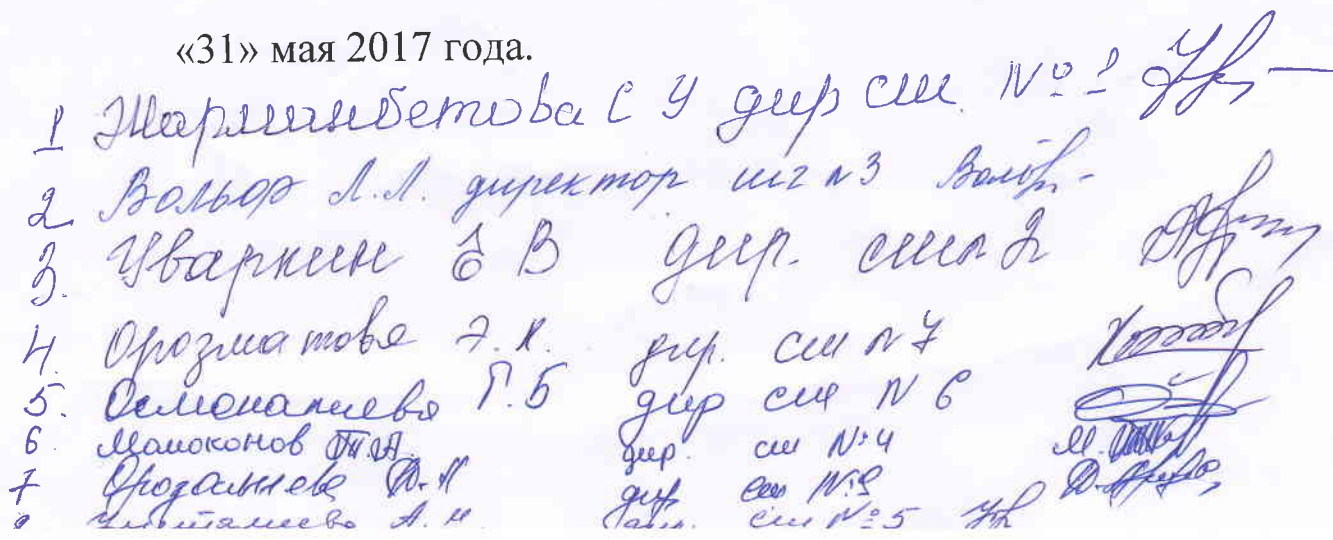 «31» мая 2017 года.
1 Жарманбетова С У дир сш. № 1
2. Вольф Л.Л. директор шг №3
3. Уваркин Е В дир. сш № 2
4. Орозматова Э.К. дир. сш № 7
5. Осмоналиева Г.Б дир сш № 6
6. Малоконов дир. сш №4
7 Д.К дир сш №9
А.М. сш №5